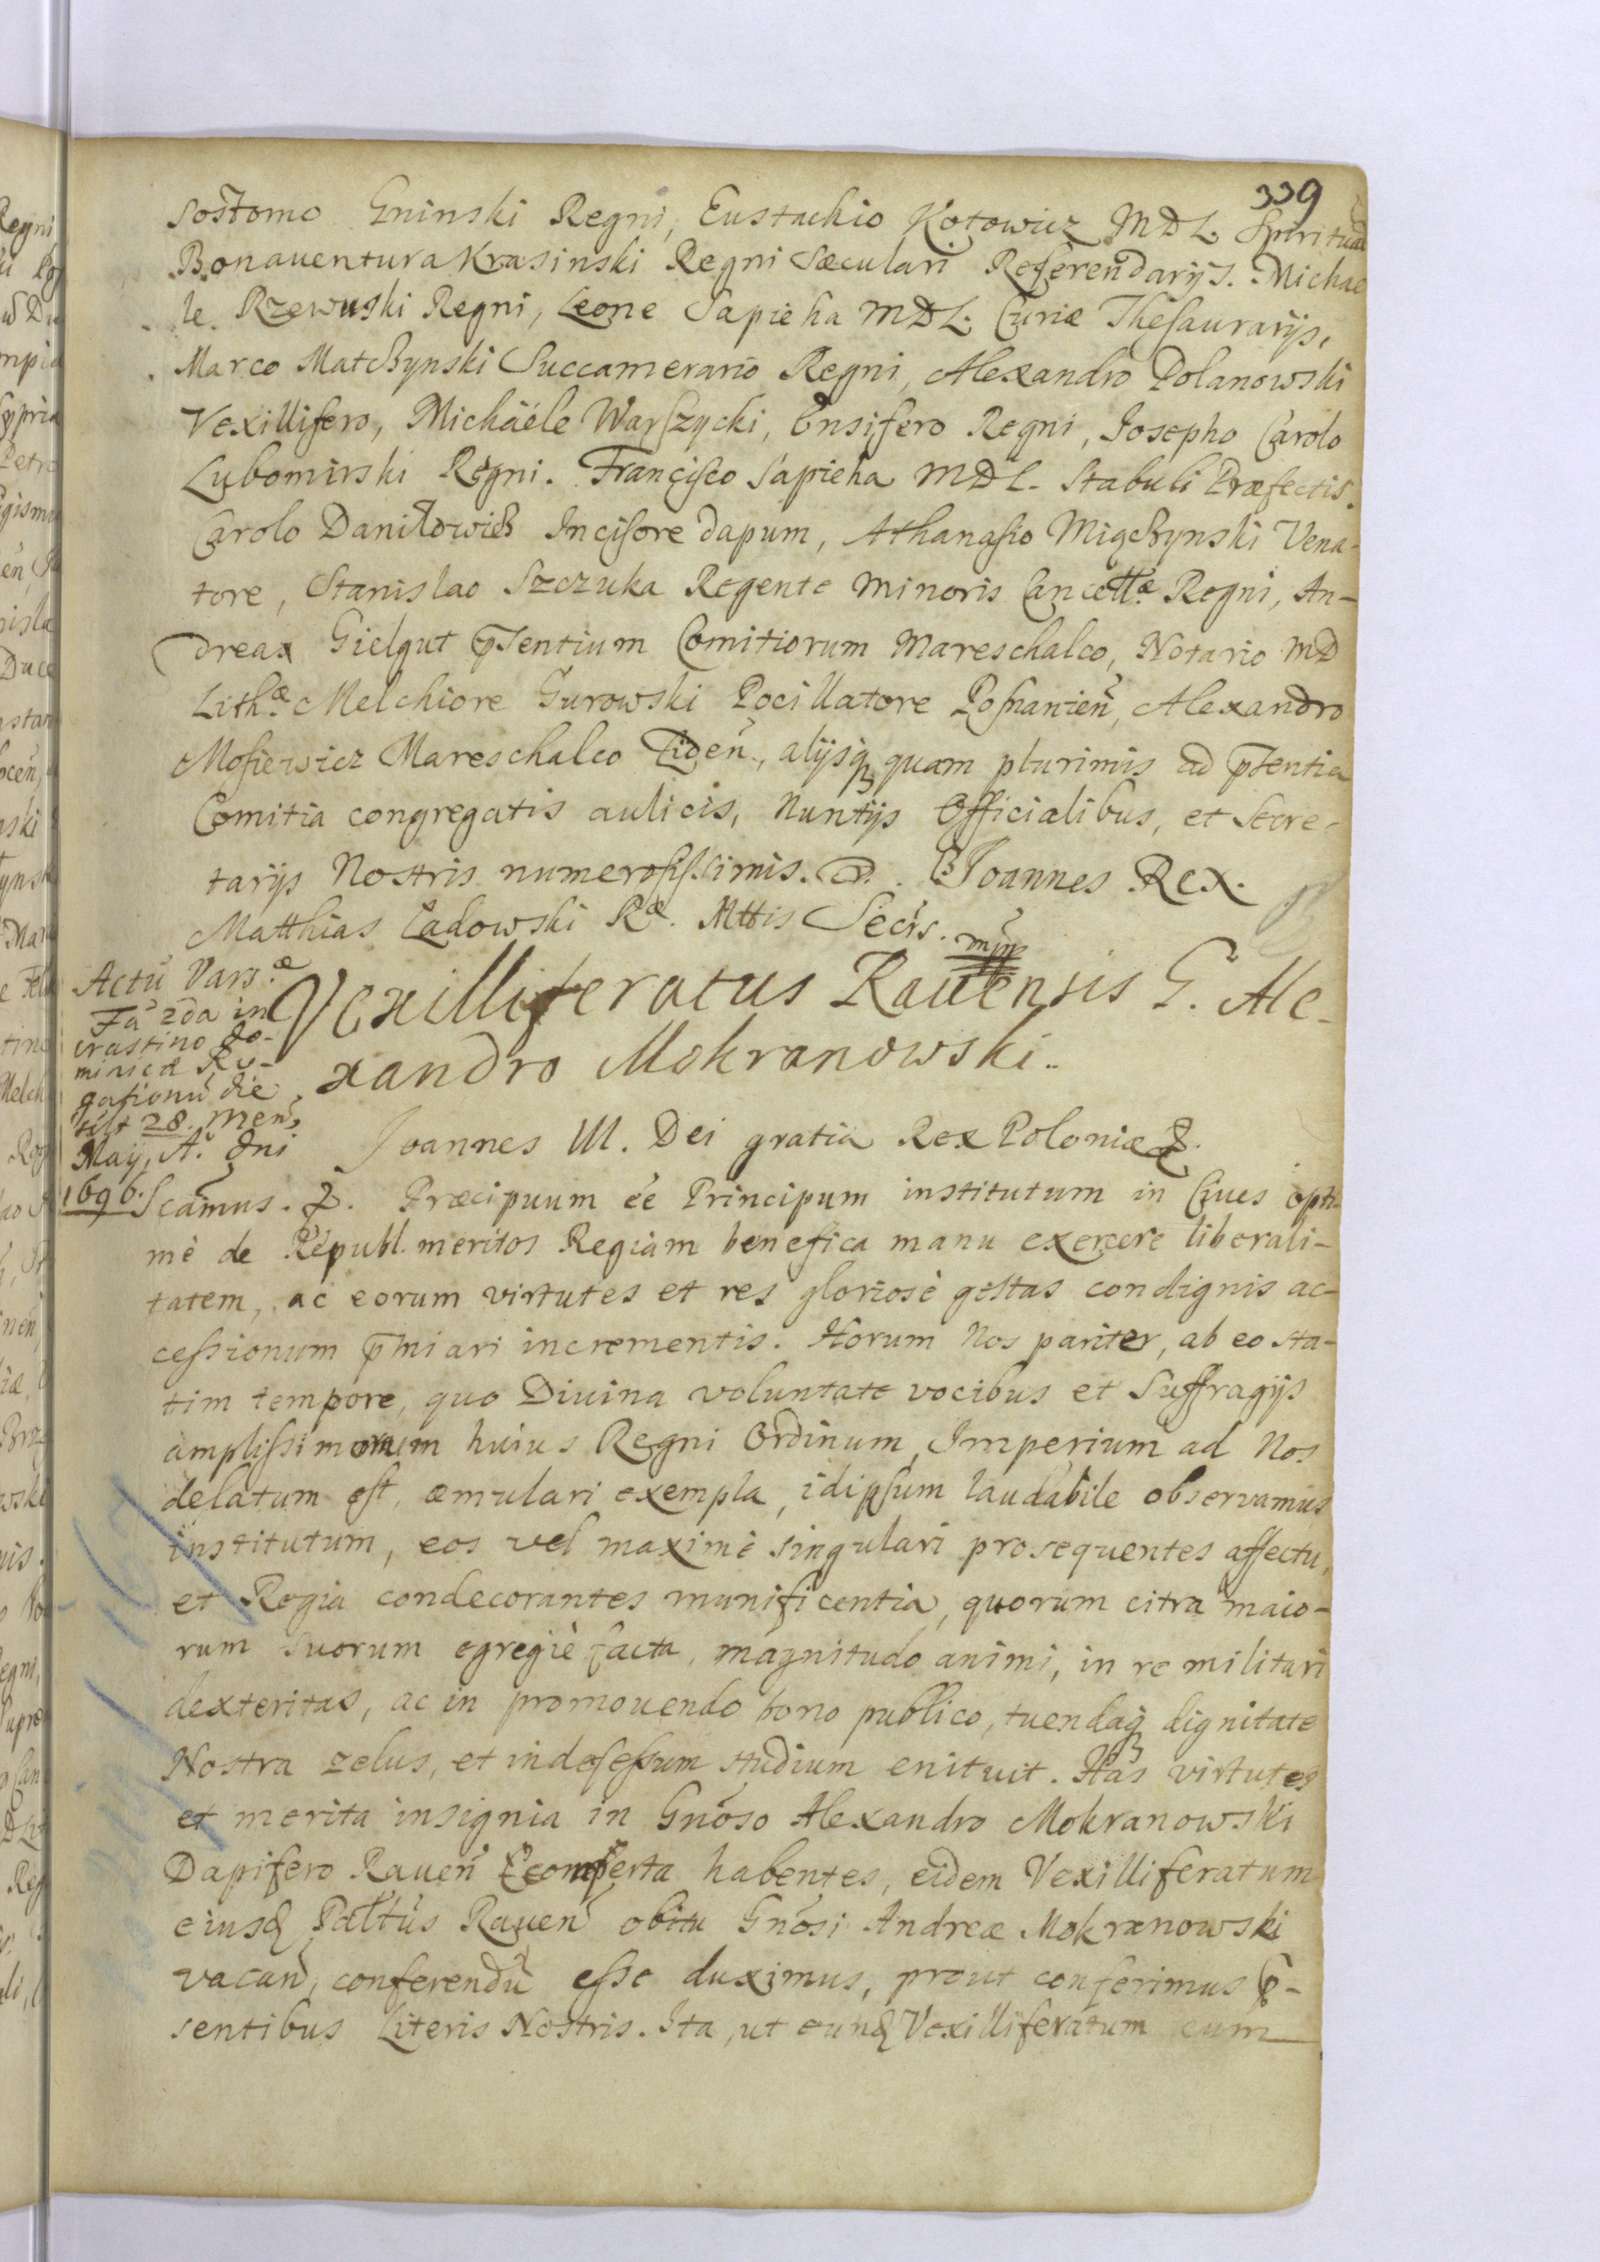 339
sostomo Gninski Regni, Eustachio Kotowicz MDL. Spirituali
Bonauentura Krasinski Regni Sæculari Referendarijs. Michae
le Rzewuski Regni, Leone Sapieha MDL. Curiæ Thesaurarijs,
Marco Matczynski Succamerario Regni, Alexandro Polanowski
Vexillifero, Michaéle Warszycki, Ensifero Regni, Josepho Carolo
Lubomirski Regni. Francisco Sapieha MDL. Stabuli Præfectis.
Carolo Daniłowicz Incisore dapum, Athanasio Miączynski Vena-
tore, Stanislao Szczuka Regente Minoris Cancellæ Regni, An-
dreas Gielgut p̃sentium Comitiorum Mareschalco, Notario MD
Lithæ Melchiore Gurowski Pocillatore Posnanień, Alexandro
Mosiewicz Mareschalco Lideń, alijsq quam plurimis ad p̃sentia
Comitia congregatis aulicis, Nuntijs Officialibus, et Secre-
tarijs Nostris numerosissimis. Joannes Rex.
Matthias Ładowski Ræ. Mttis Secrs. mpp
Actũ Varsæ
Fa 2da in
crastino Do-
minicæ Ro-
gationũ die
28. Mens
Maij, A. Dni
1696.
Vexilliferatus Rauensis G. Ale-
xandro Mokranowski.
Joannes III. Dei gratia Rex Poloniæ &.
Scãmus. &. Præcipuum ẽe Principum institutum in Ciues opti-
mè de Republ. meritos Regiam benefica manu exercere liberali-
tatem, ac eorum virtutes et res gloriosè gestas condignis ac-
cessionum p̃miari incrementis. Horum Nos pariter, ab eo sta-
tim tempore, quo Diuina voluntate vocibus et Suffragijs
amplissimorum huius Regni Ordinum, Imperium ad Nos
delatum est, æmulari exempla, idipsum laudabile observamus
institutum, eos vel maximè singulari prosequentes affectu,
et Regia condecorantes munificentia, quorum citra maio-
rum suorum egregiè facta, magnitudo animi, in re militari
dexteritas, ac in promouendo bono publico, tuendaq dignitate
Nostra zelus, et indefessum studium enituit. Has virtutes
et merita insignia in Gnõso Alexandro Mokranowski
Dapifero Raueñ comperta habentes, eidem Vexilliferatum
eiusd Paltũs Raueñ obitu Gnõsi Andreæ Mokranowski
vacañ, conferendũ esse duximus, prout conferimus p̃-
sentibus Literis Nostris. Ita, ut eund Vexilliferatum eum